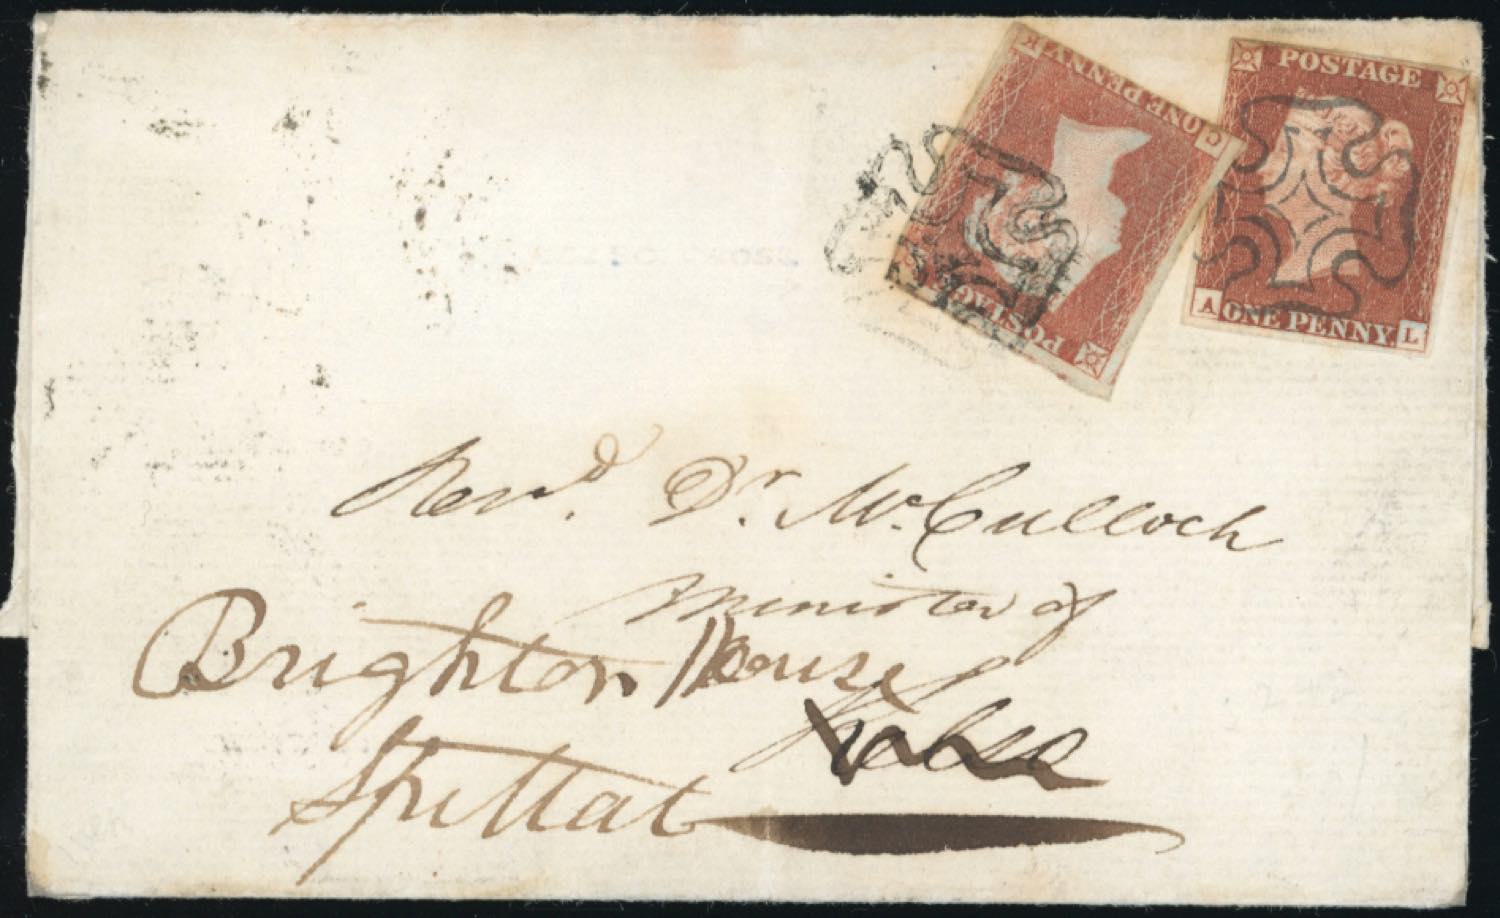 POSTAGE
A ONE PENNY. L
K ONE PENNY C
POSTAGE
Revd. Dr. McCulloch
Minister of
Brighton House
Kelso
Spittal